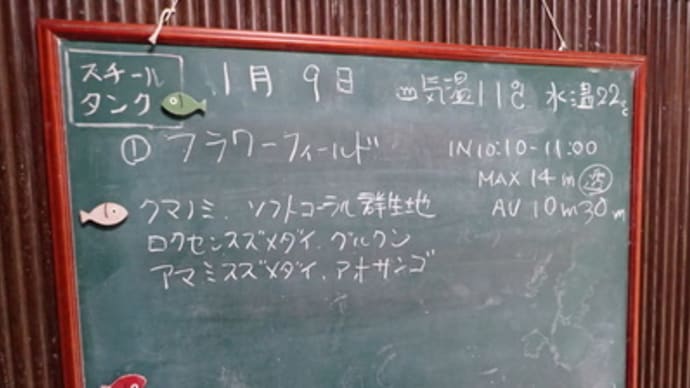 スチール
タンク
1月 9日
m気温11℃ 水温22℃
① フラワーフィールド
IN10:10-11:00
MAX 14m 透
AV 10m 30m
クマノミ、ソフトコーラル群生地
ロクセンスズメダイ、グルクン
アマミスズメダイ、アオサンゴ